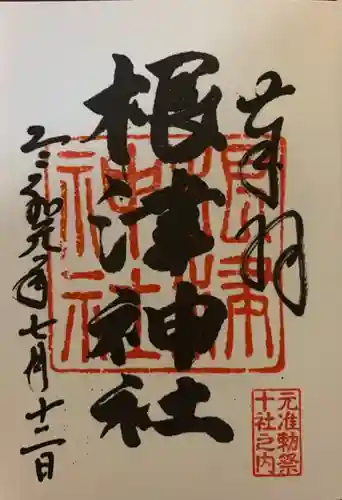 奉拝
根津神社
令和元年七月十二日
根津神社
元准勅祭
十社之内